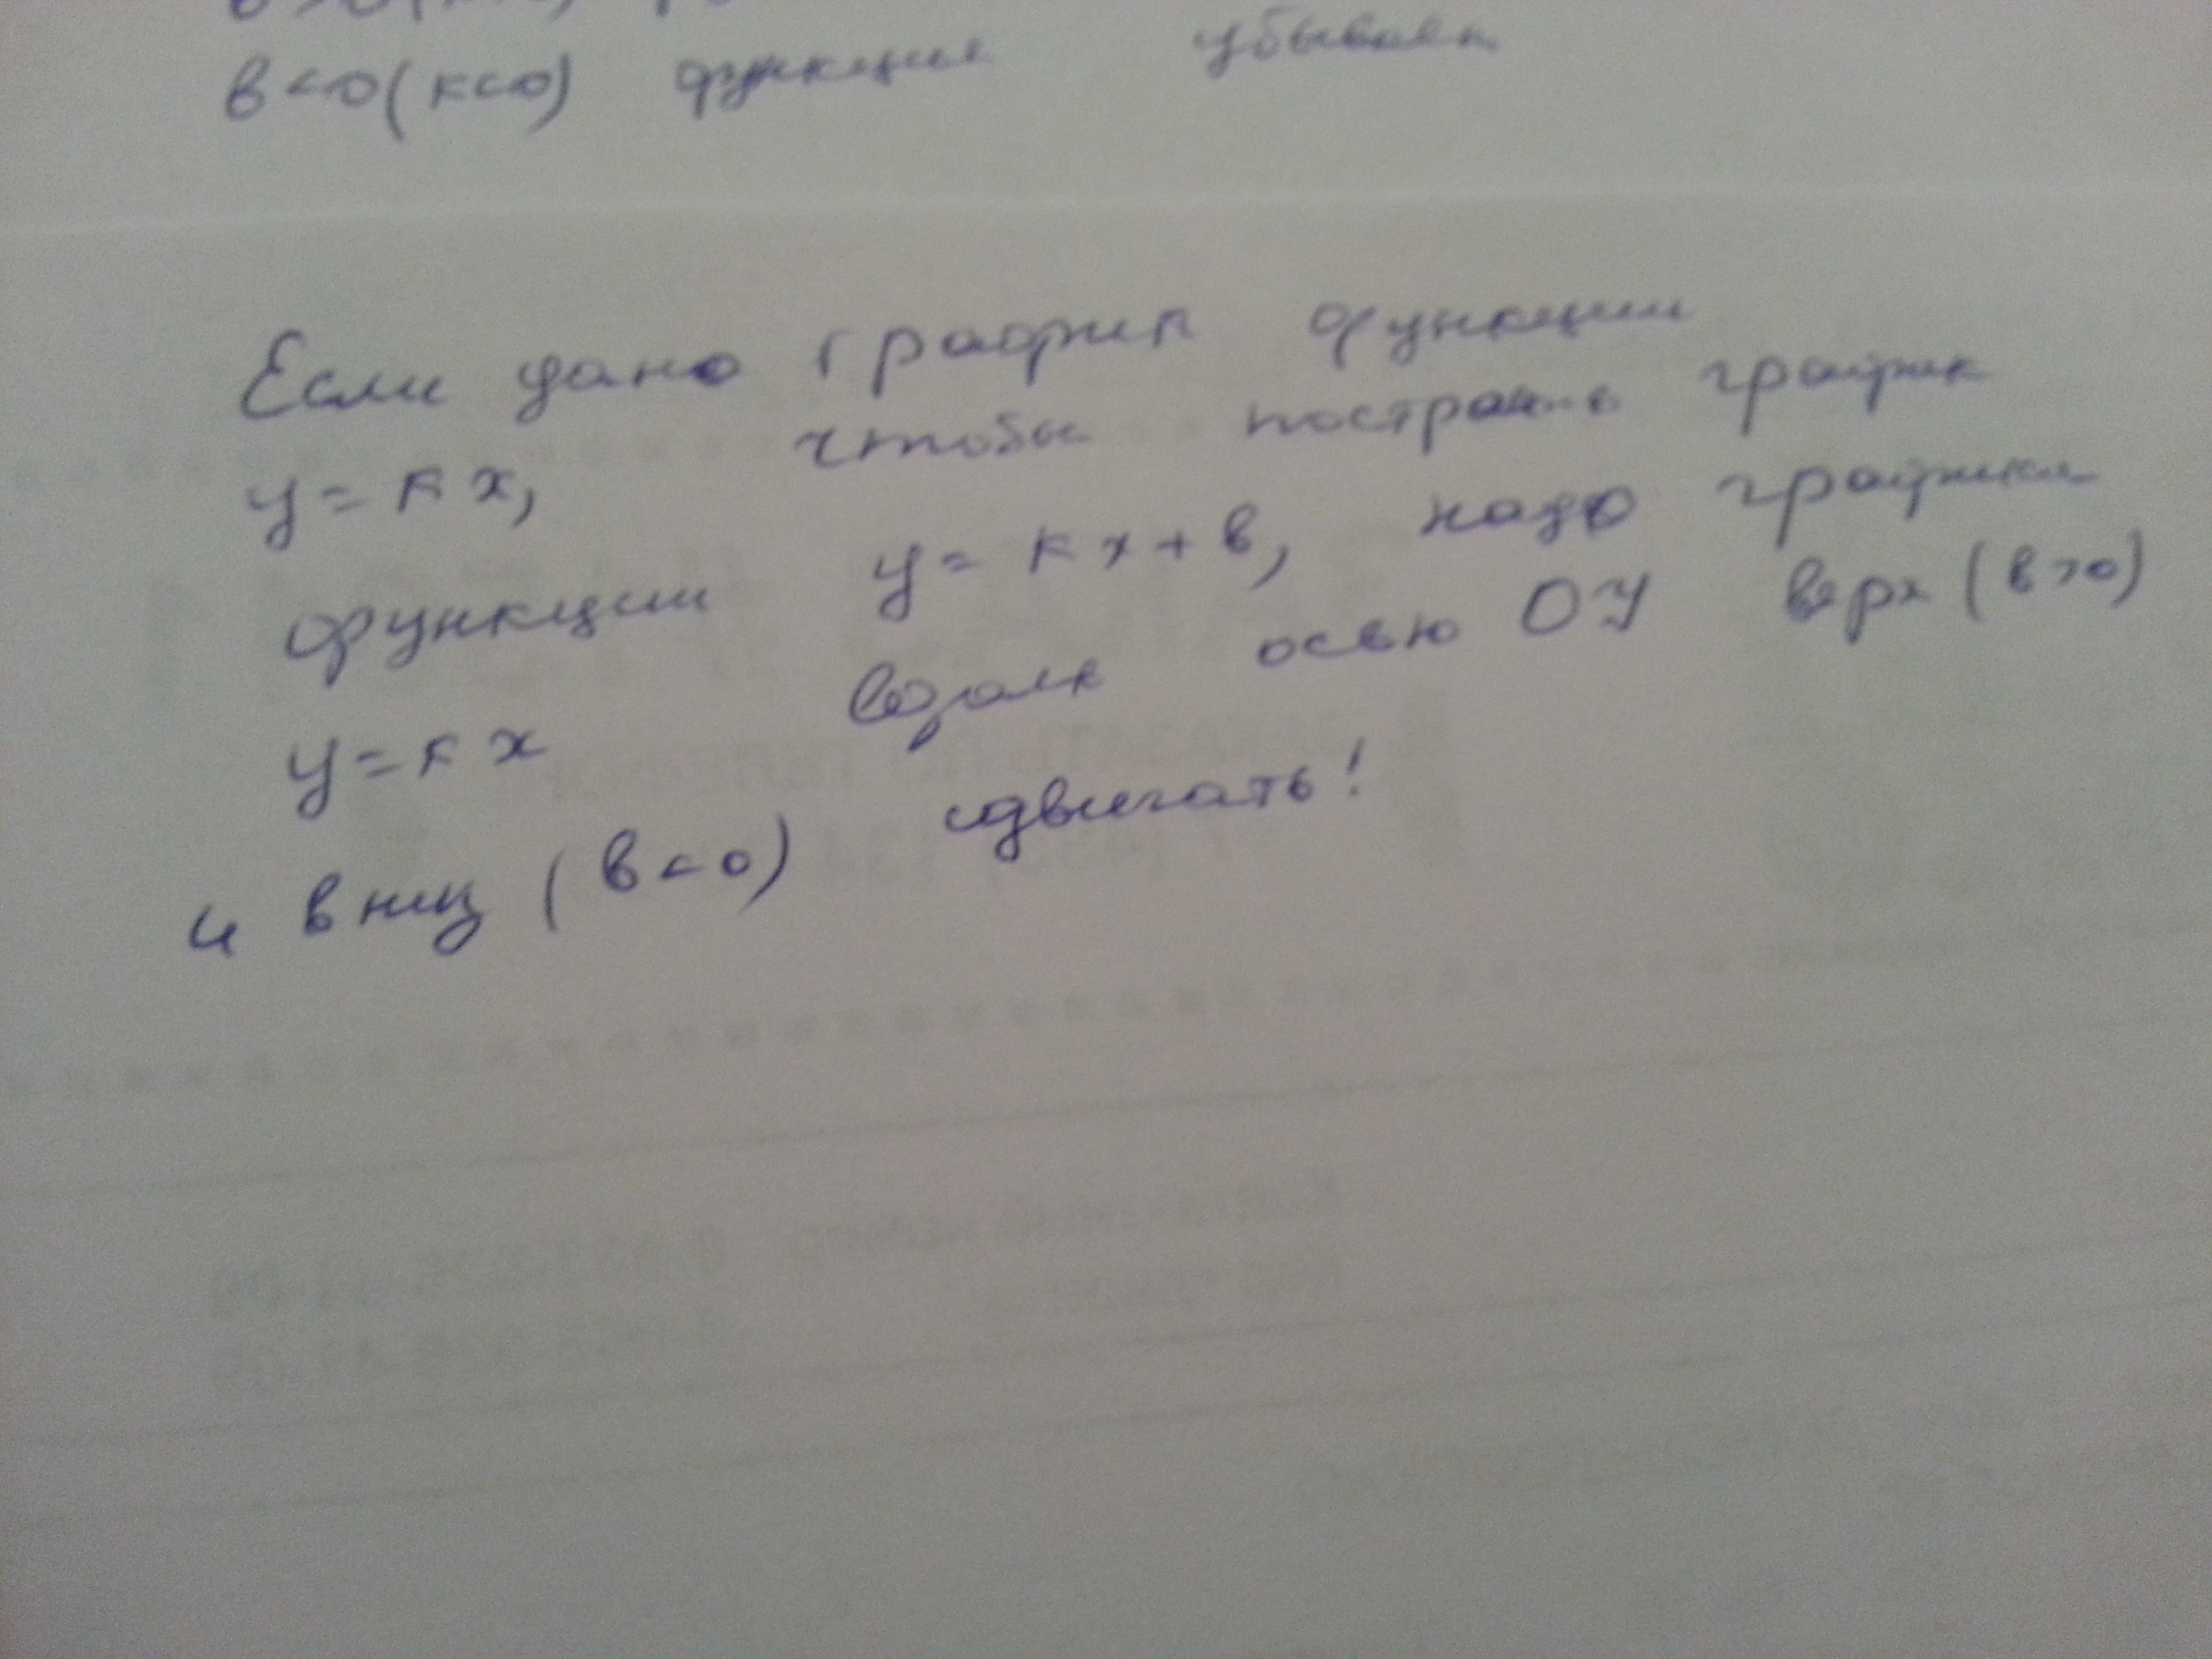 в<0(к<0) функция убывает
Если дано график функции
у=кх, чтобы построить график
функции у=кх+в, надо графика
у=кх вдолк осью ОУ верх (в>0)
и вниз (в<0) сдвигать!